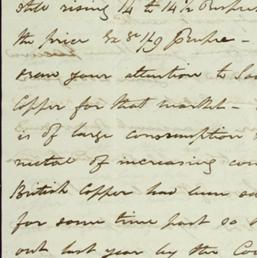 still rising 14 to 14½ Rupees
the price
draw your attention to
Copper for that market –
is of large consumption
metal of increasing con
British Copper had been
for some time past so
out last year by the Co